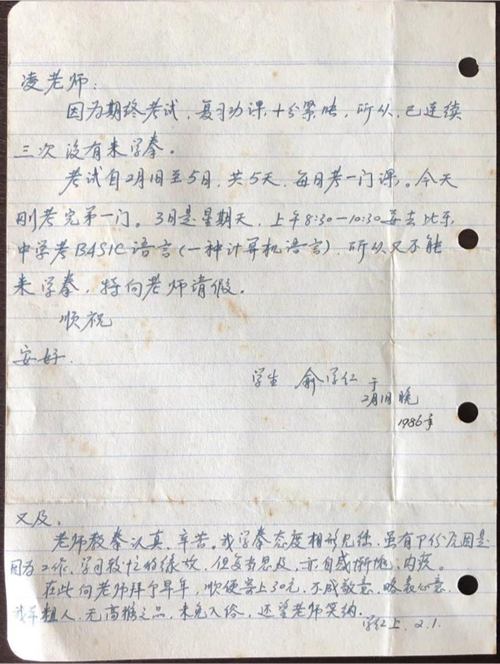 凌老师:
因为期终考试,复习功课十分紧张,所以,已连续
三次没有来学拳。
考试自2月1日至5日,共5天,每日考一门课。今天
刚考完第一门。3日是星期天,上午8:30—10:30要去比乐
中学考BASIC语言(一种计算机语言),所以又不能
来学拳,特向老师请假。
顺祝
安好
学生 俞学仁 于
2月1日晚
1986年
又及,
老师教拳认真、辛苦。我学拳态度相形见绌,虽有部份原因是
因为工作、学习较忙的缘故,但每当思及,亦自感惭愧、内疚。
在此向老师拜个早年,顺便寄上30元,不成敬意,略表心意,
我乃粗人,无高雅之品,未免入俗,还望老师笑纳。
学仁上 2.1.